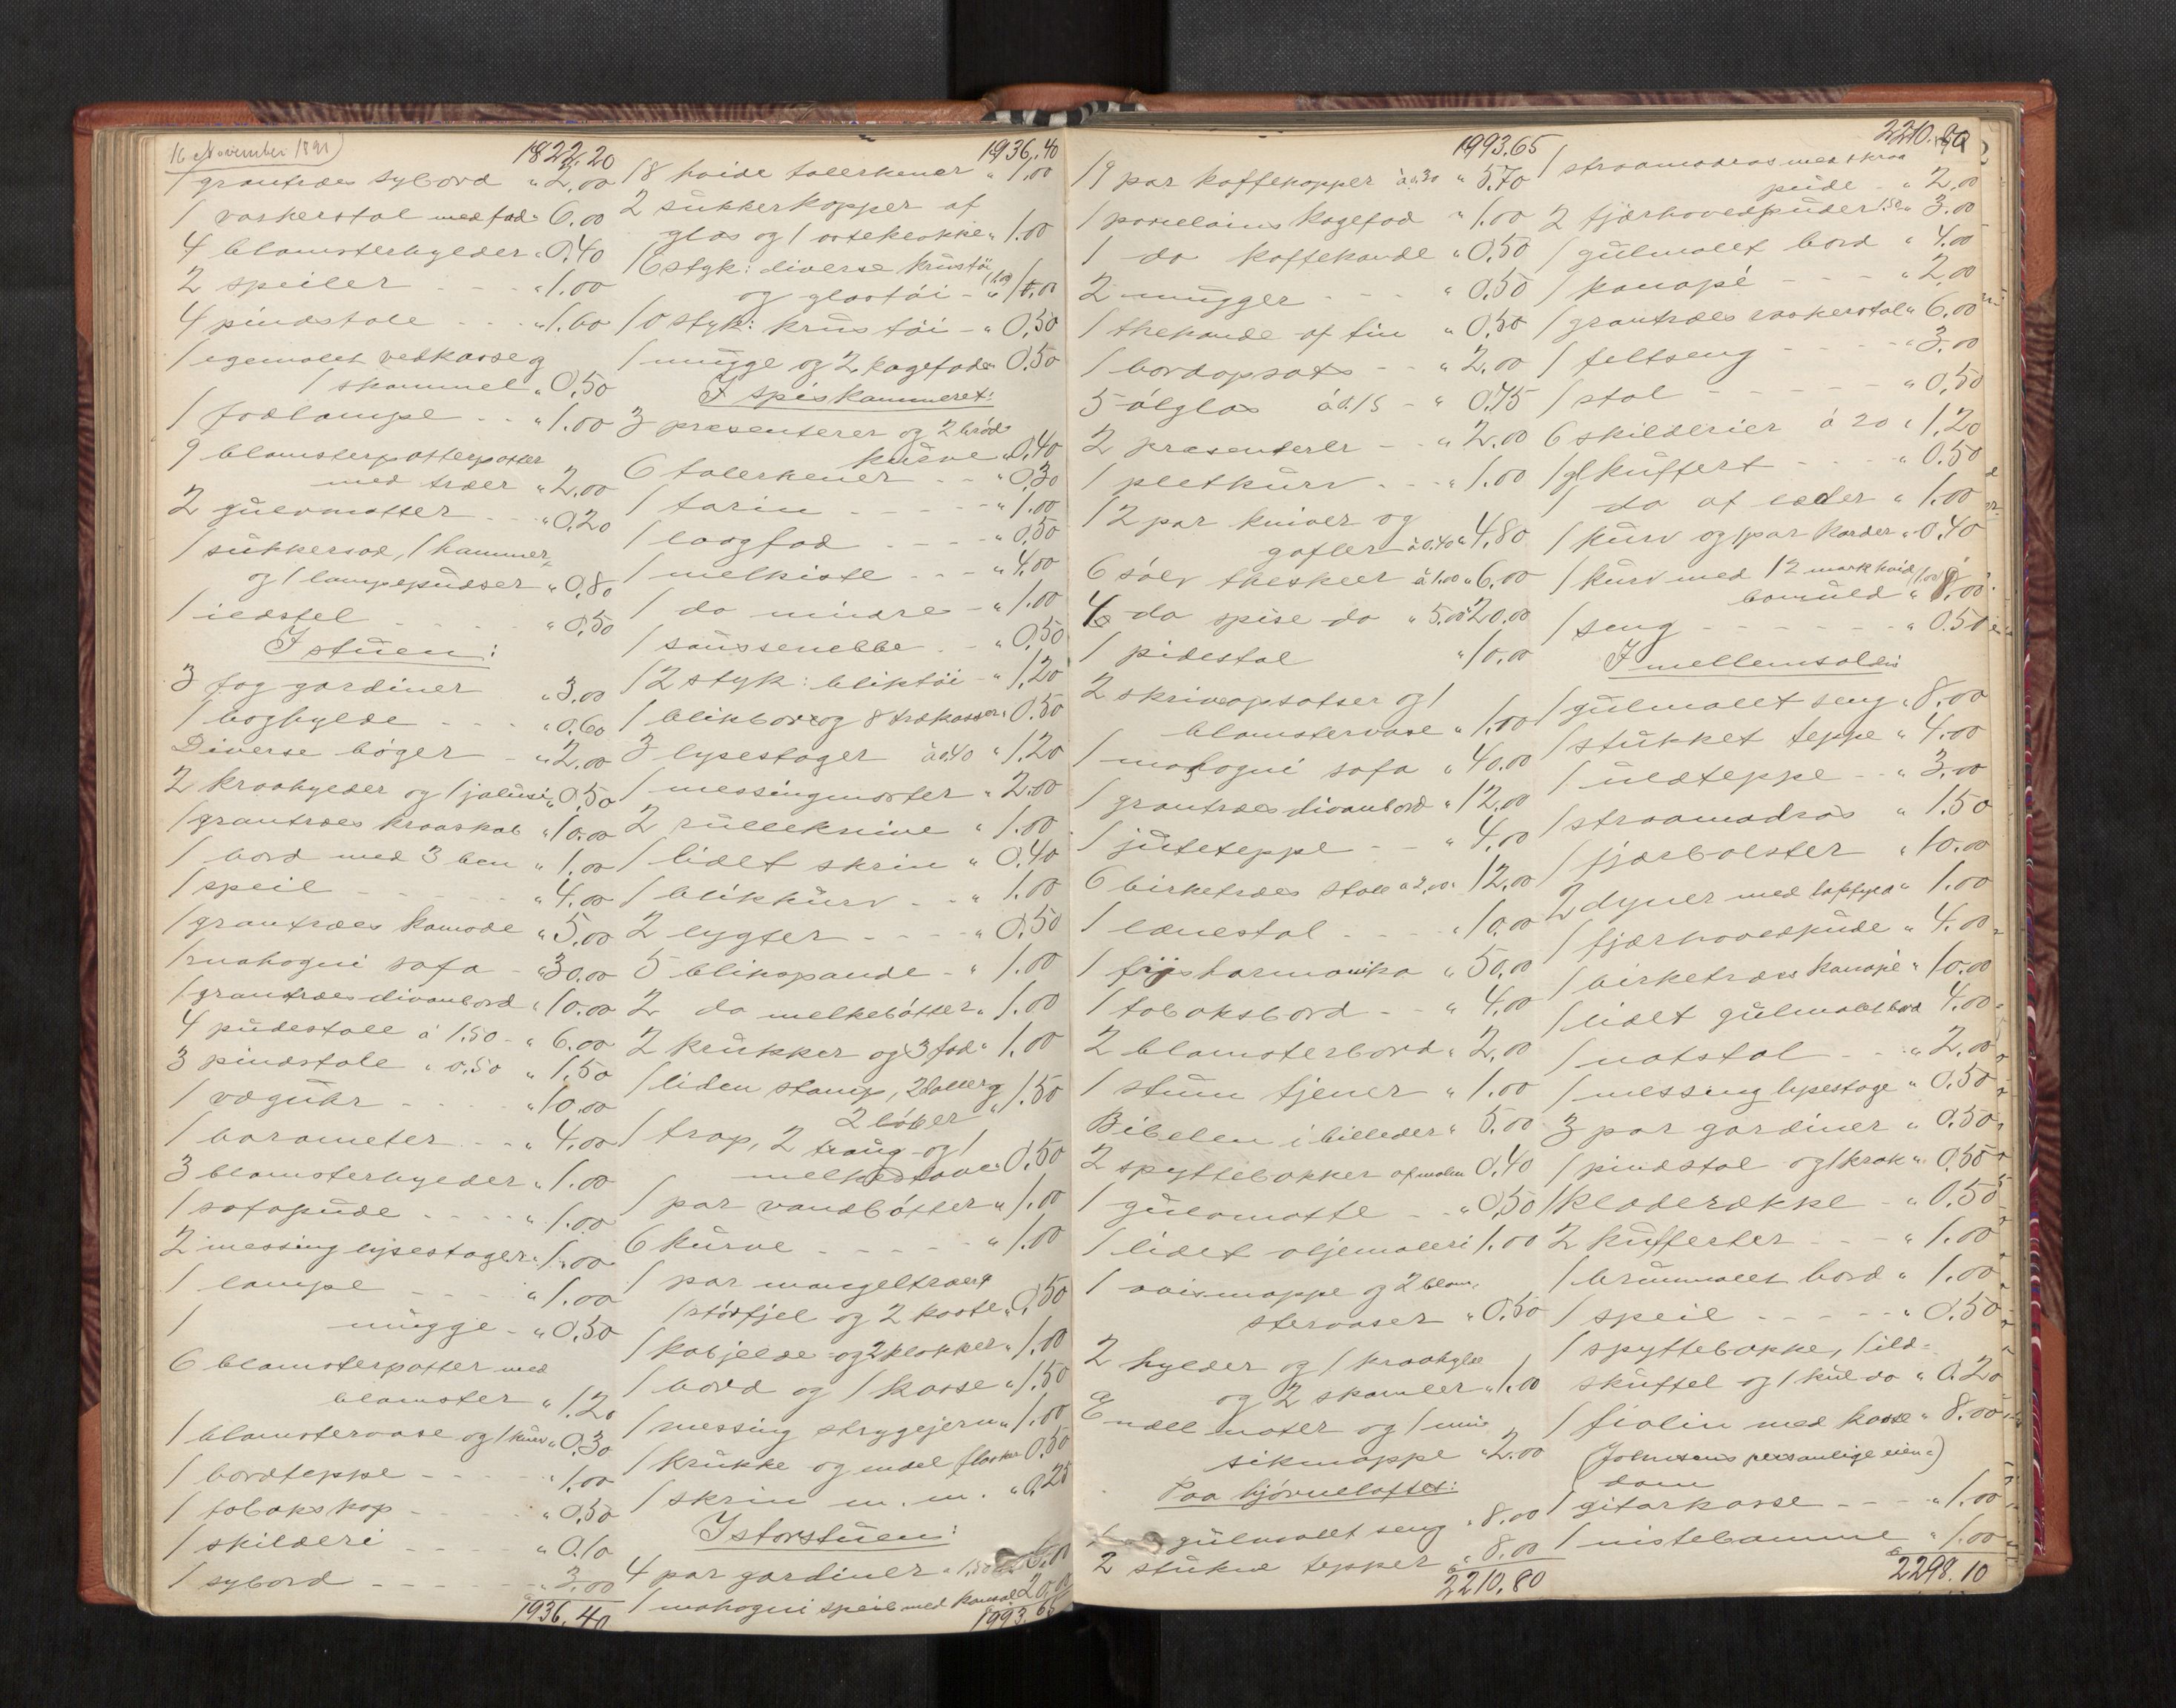 16 November 1891
1822.20
1 grantræes sybord " 2,00
1 vaskerstol med fad " 6.00
4 blomsterhylder " 0,40
2 speiler - - - " 1.00
4 pindstole - - - " 1.60
1 egemalet vedkasse og
1 skammel " 0,50
1 fodlampe - - " 1.00
9 blomsterpotter
med træer " 2,00
2 gulvmatter - - " 0,20
1 sukkersax, 1 hammer
og 1 lampepudser " 0,80
1 ildstel - - - - " 0,50
I stuen:
3 fag gardiner " 3.00
1 boghylde - - - " 0.60
Diverse bøger - " 2,00
2 kraahylder og 1 jalusi " 0,50
1 grantræes kraaskab " 10.00
1 bord med 3 ben " 1,00
1 speil - - - - " 4,00
1 grantræes komode " 5,00
1 mahogni sofa - " 30,00
1 grantræes divanbord " 10.00
4 pudestole á 1.50 - " 6.00
3 pindstole " 0.50 " 1,50
1 væguhr - - - - " 10,00
1 barometer - - - " 4,00
3 blomsterhylder " 1.00
1 sofapude - - - - " 1,00
2 messing lysestager " 1,00
1 lampe - - - - " 1.00
1 mugge - " 0,50
6 blomsterpotter med
blomster " 1.20
1 blomstervase og 1 kurv " 0,30
1 bordteppe - - - - " 1.00
1 tobakskop - - - - " 0,50
1 skilderi - - - - " 0.10
1 sybord - - - - " 3,00
1936.40
1936.40
18 hvide tallerkener " 1,00
2 sukkerkopper af
glas og 1 osteklokke " 1.00
16 styk: diverse krustøi
og glastøi - " 1,00
10 styk: krustøi - " 0,50
1 mugge og 2 kagefade " 0,50
I spiskammeret:
3 presenterer og 2 brød
kurve " 0,40
6 talerkener - - " 0,30
1 tarin - - - - " 1.00
1 laagfad - - - - " 0,50
1 melkiste - - - " 4,00
1 do mindre - " 1.00
1 saussenebbe - - " 0,50
12 styk: bliktøi - " 1,20
1 blikboxe og 8 trækasser " 0.50
3 lysestager á 0.40 " 1,20
1 messingmorter " 2,00
2 rulleknive " 1.00
1 lidet skrin " 0,40
1 blikkurv - - " 1.00
2 lygter - - - - " 0,50
5 blikspande - " 1.00
2 do melkebøtter " 1.00
2 krukker og 3 fad " 1.00
1 liden stamp, 2 baller og
2 løber " 1.50
1 trap, 2 traug og 1
" 0,50
1 par vandbøtter " 1.00
6 kurve - - - - " 1.00
1 par mangeltræer
1 størfjel og 2 koste " 0,50
1 kobjelde og 2 klokker " 1.00
1 bord og 1 kasse " 1.50
1 messing strygejern " 1.00
1 krukke og endel flasker 0,50
1 skrin m. m. " 0,25
I storstuen:
4 par gardiner " 1,50 6.00
1 mahogni speil med konsol 20,00
1993.65
1993.65
19 par kaffekopper à 0.30 " 5.70
1 porcelains kagefad " 1.00
1 do kaffekande " 0,50
2 mugger - - - " 0,50
1 thekande af tin " 0,50
1 bordopsats - - " 2,00
5 ølglas á 0.15 - " 0,75
2 præsenterer - - " 2.00
1 pletkurv - - - " 1.00
12 par kniver og
gafler á 0,40 " 4,80
6 sølv theskeer á 1.00 " 6.00
4 do spise do " 5.00 " 20.00
1 pidestal " 10.00
2 skriveopsatser og 1
blomstervase " 1.00
1 mahogni sofa " 40.00
1 grantræes divanbord " 12,00
1 juteteppe - - " 4,00
6 birketræes stole á 2,00 " 12,00
1 lænestol - - - " 10,00
1 fijsharmonika " 50,00
1 tobaksbord - - " 4,00
2 blomsterbord " 2,00
1 stum tjener " 1.00
Bibelen i billeder " 5.00
2 spyttebakker af malm 0,40
1 gulvmatte - - " 0,50
1 lidet oljemaleri 1.00
1 avismappe og 2 blom-
stervaser " 0,50
2 hylder og 1 kraahylde
og 2 skamler " 1.00
Endel noter og 1 mu-
sikmappe " 2.00
Paa hjørneloftet:
1 gulmalet seng " 8.00
2 stukne tepper " 8.00
2210,80
2210.80
1 straamadras med skraa
pude - " 2,00
2 fjærhovedpuder 1.50 " 3.00
1 gulmalet bord " 4.00
1 kanapé - - - " 2,00
1 grantræes vaskerstol " 6,00
1 feltseng - - - - " 3,00
1 stol - - - - - " 0,50
6 skilderier á 20 " 1,20
1 gl kuffert - - - " 0.50
1 do af læder " 1,00
1 kurv og 1 par karder " 0.40
1 kurv med 12 mark hvid
bomuld " 8,00
1 seng - - - - - - " 0.50
I mellemsalen
1 gulmalet seng " 8.00
1 stukket teppe " 4.00
1 uldteppe - - " 3,00
1 straamadras " 1.50
1 fjærbolster " 10.00
2 dyner med " 1.00
1 fjærhovedpude " 4.00
1 birketræes kanape " 10.00
1 lidet gulmalet bord 4.00
1 natstol - - - " 2,00
1 messing lysestage " 0,50
3 par gardiner " 0,50
1 pindstol og 1 krak " 0,50
1 klæderække - " 0,50
2 kufferter - - - " 1.00
1 brunmalet bord " 1.00
1 speil - - - - " 0.50
1 spyttebakke, 1 ild-
skuffel og 1 kul do " 0.20
1 fiolin med kasse " 8.00
(Johnsens personlige eien-)
dom
1 gitarkasse - - - " 1.00
1 nistebomme " 1.00
2298.10